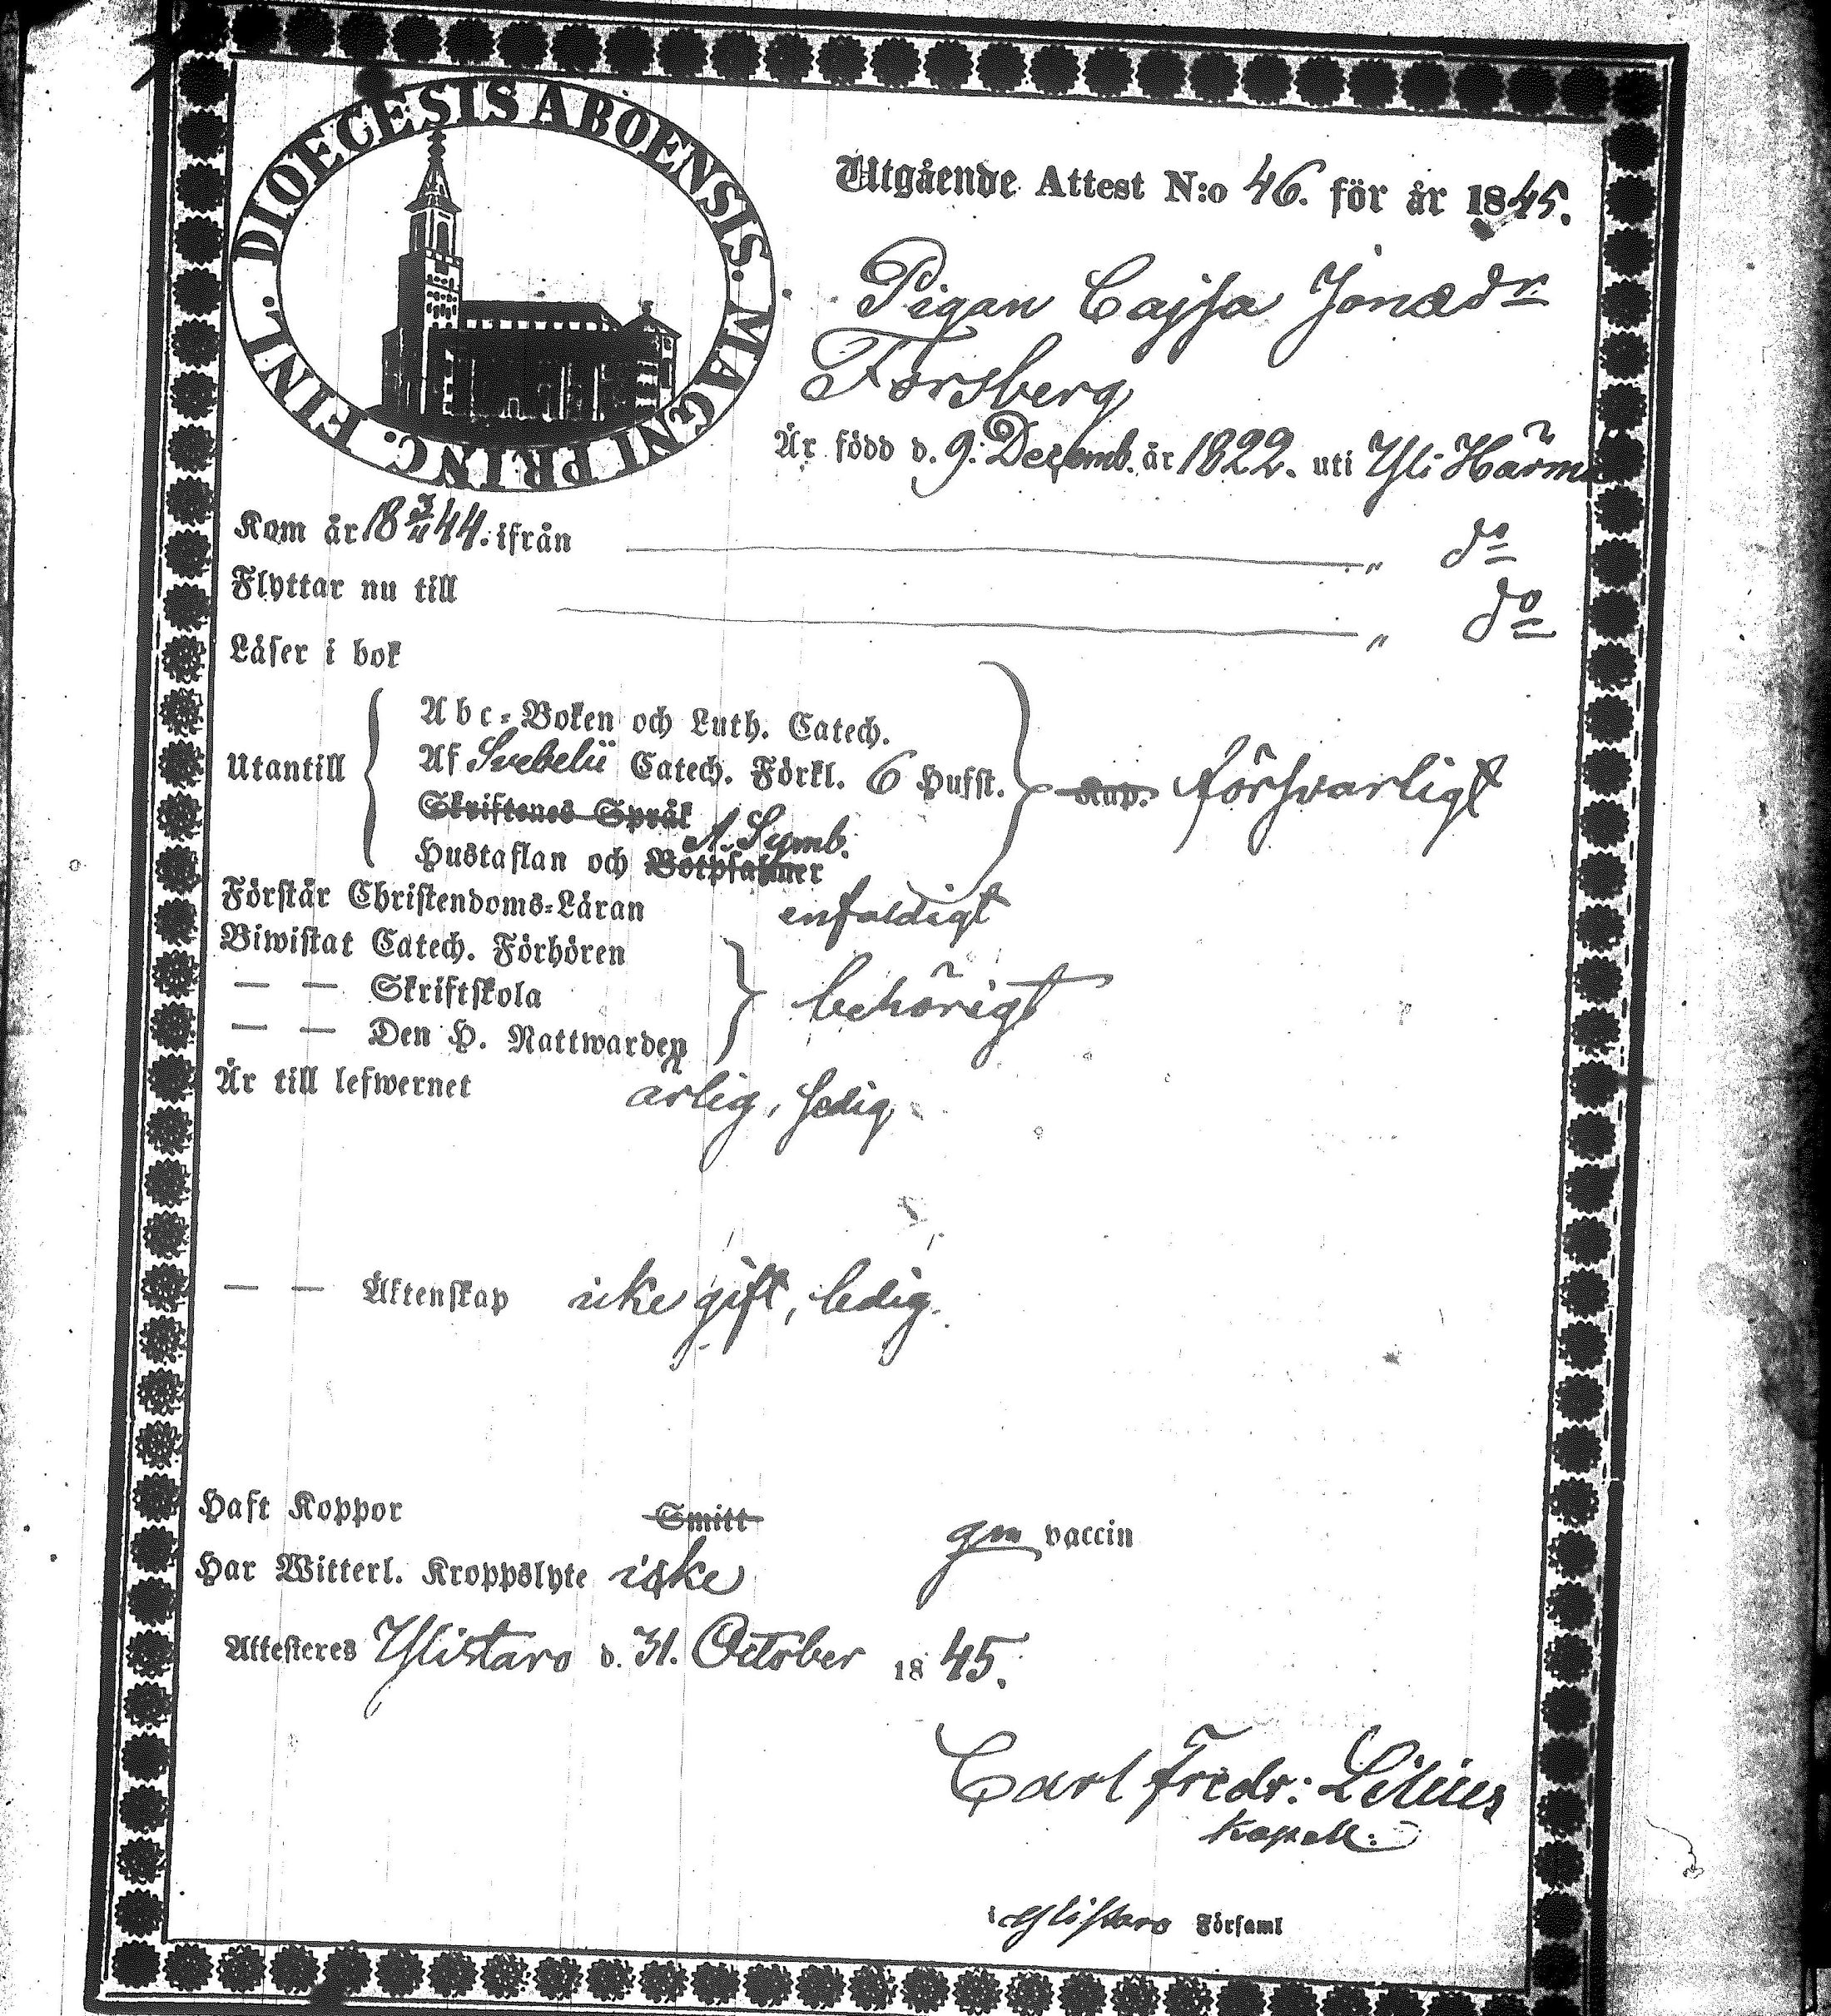 DIOECESIS ABOENSIS. MAGNI PRINC. FINL.
Utgående Attest N:o 46. för år 1845.
Pigan Cajsa Jonæd:r
Forsberg
Är född d. 9. Decemb. år 1822. uti Yli Härmä
Kom år 18 3/11 44. ifrån " do
Flyttar nu till " do
Läser i bok
Abc-Boken och Luth. Catech.
Utantill Af Svebelii Catech. Förkl. 6 Hufst. Kap. försvarligt
Skriftenes Språk
A. Symb.
Hustaflan och Botpsalmer
Förstår Christendoms-Läran enfaldigt
Biwistat Catech. Förhören
— — Skriftskola behörigt
— — Den H. Nattwarden
Är till lefwernet ärlig, sedig
— — Äktenskap icke gift, ledig.
Haft Koppor Smitt gm vaccin
Har Witterl. Kroppslyte icke
Attesteres Ylistaro d. 31. October 1845.
Carl Fredr: Lilius
Kapell:
i Ylistaro Församl